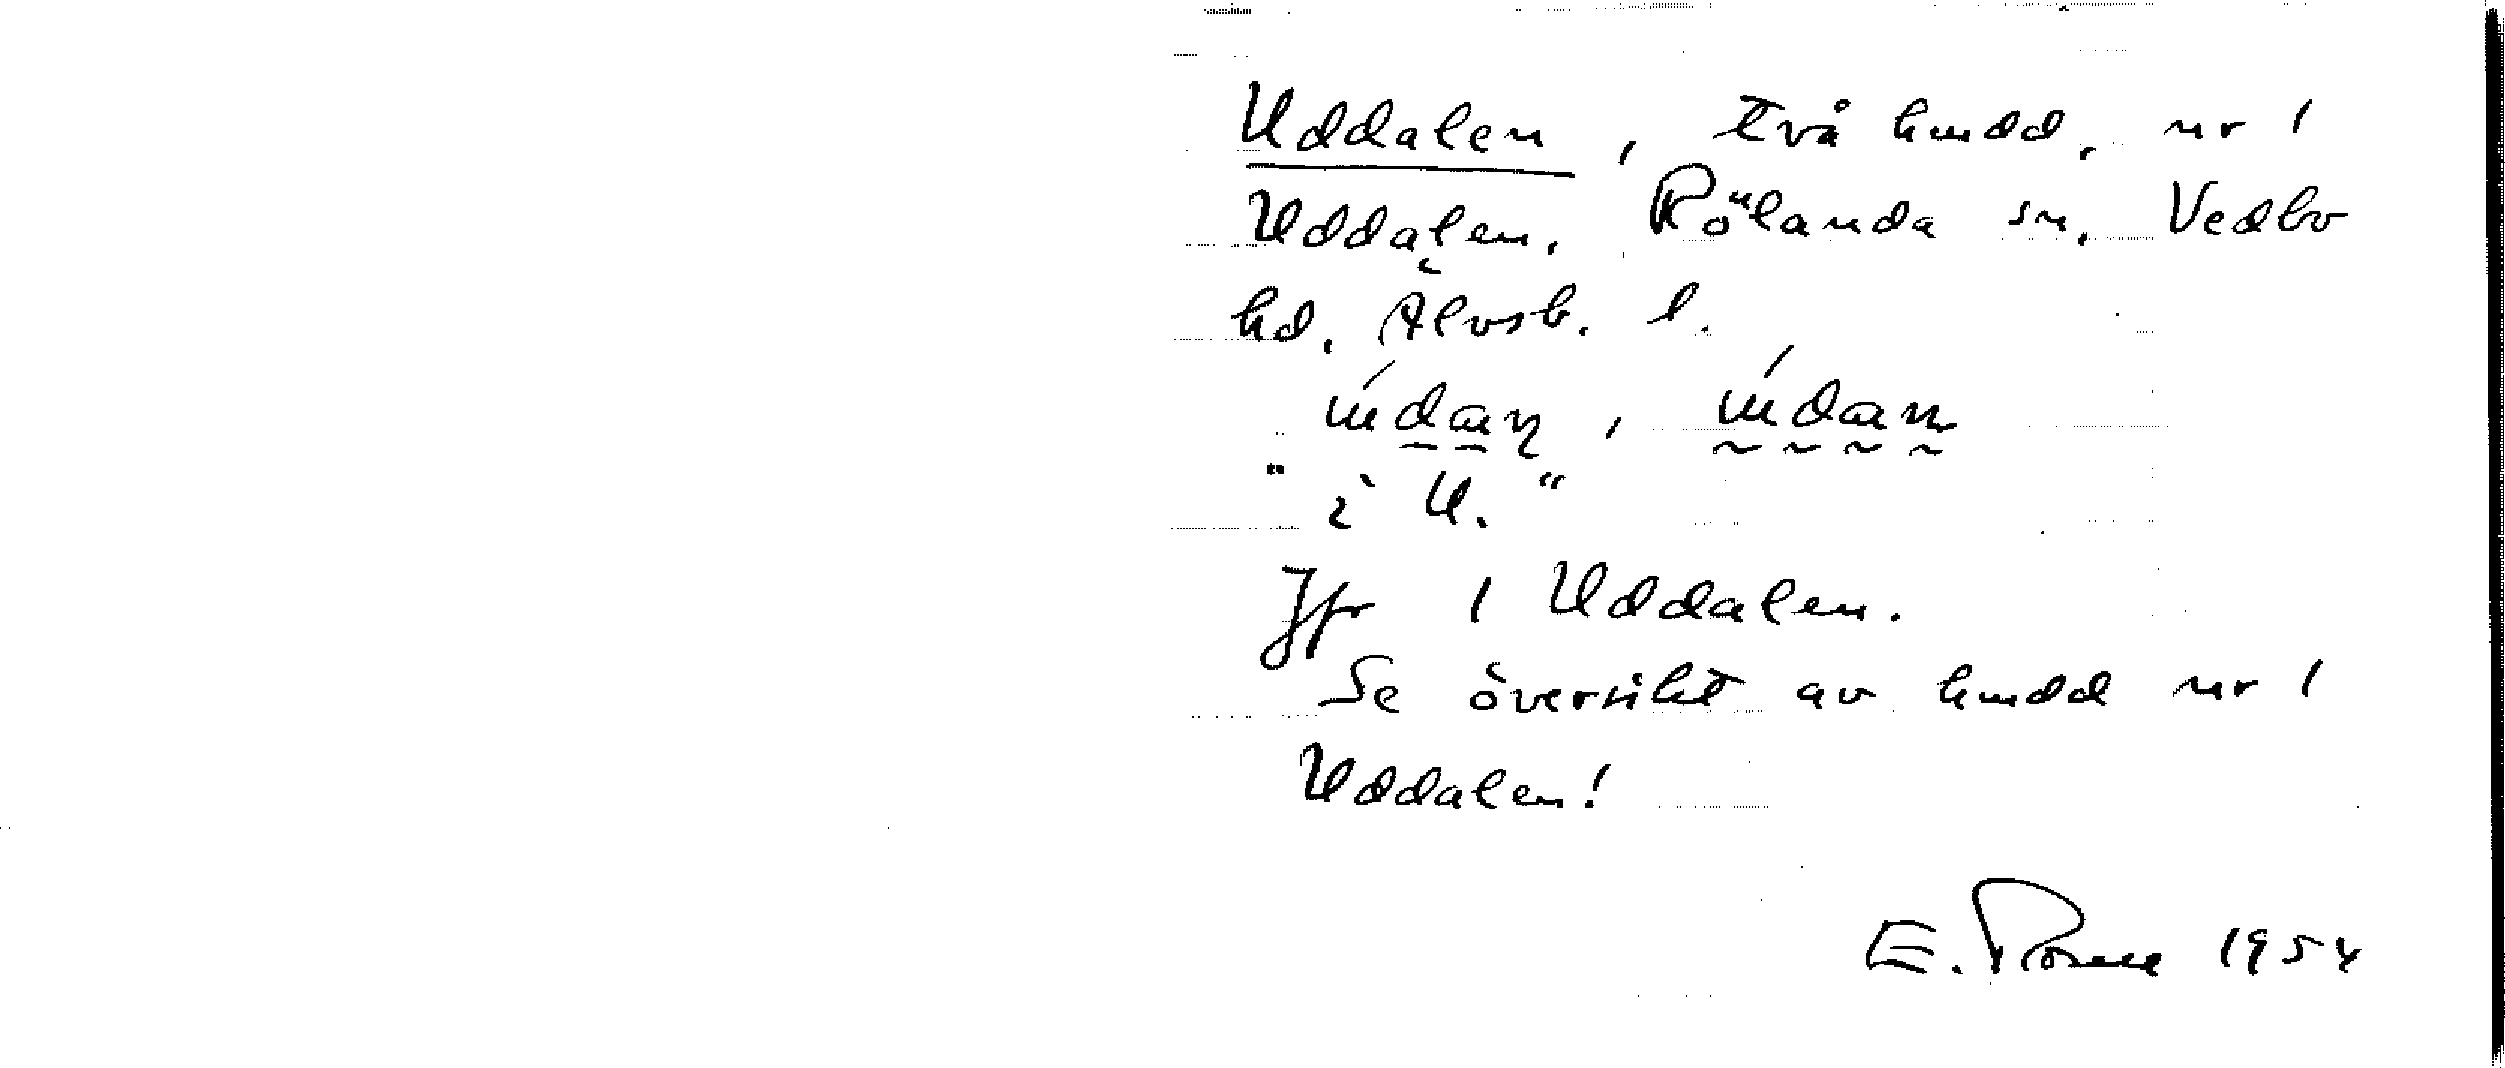 Uddalen, två hmdd, nr 1
Uddalen. Rölanda sn. Vedbo
hd. Älvsb. l.
"i U."
Jfr 1 Uddalen.
Se översikt av hmdd nr 1
Uddalen!
E. Rosell 1954